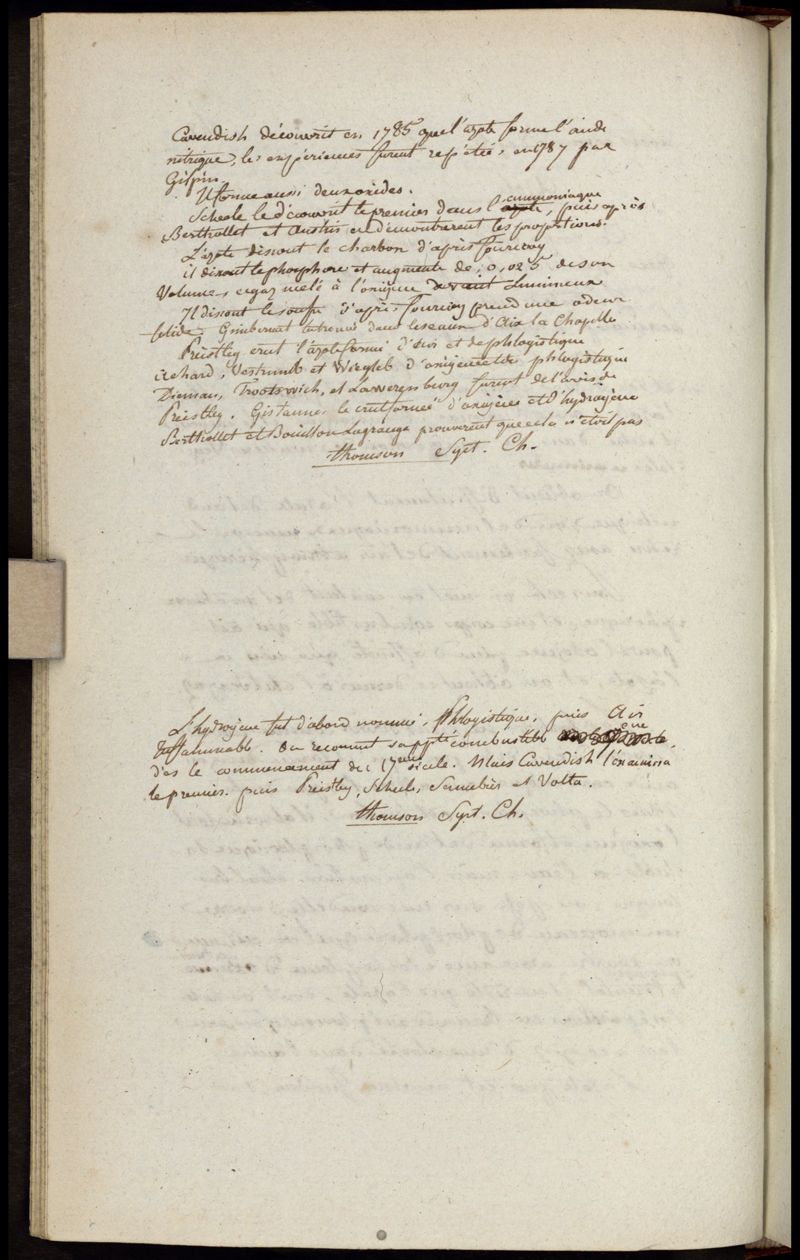 Cavendish découvrit en 1785 que l'azote forme l'acide
nitrique, les expériences furent repétées en 1787 par
Gilpin.
Il forme aussi deux oxides.
Scheele le découvrit le premier dans l'ammoniaque, puis après
Berthollet et Austin en démontrerent les proportions.
L'azote dissout le charbon d'après fourcroy
il dissout le phosphore et augmente de 0,025 de son
Volume, ce gaz melé à l'oxigene devient Lumineux
Il dissout le soufre d'après fourcroy prend une odeur
fetide. Gimbernat la trouvé dans les eaux d'Aix la Chapelle
Priestley crut l'azote formé d'air et de phlogistique
Achard, Vestrumb et Wiegleb d'oxigene et de phlogistique
Dieman, Troostwich, et Lawerenburg furent de l'avis de
Priestley. Girtanner le crut formé d'oxigène et d'hydrogène
Berthollet et Bouillon Lagrange prouverent que cela n'etoit pas
thomson Syst. Ch.
L'hydrogene fut d'abord nommé, Phlogistique, puis Air
Inflammable. On reconnut sa pp.té combustible
d'es le commencement du 17eme siecle. Mais Cavendish l'examina
le premier. puis Priestley, Scheele, Sennebier et Volta.
thomson Syst. Ch.